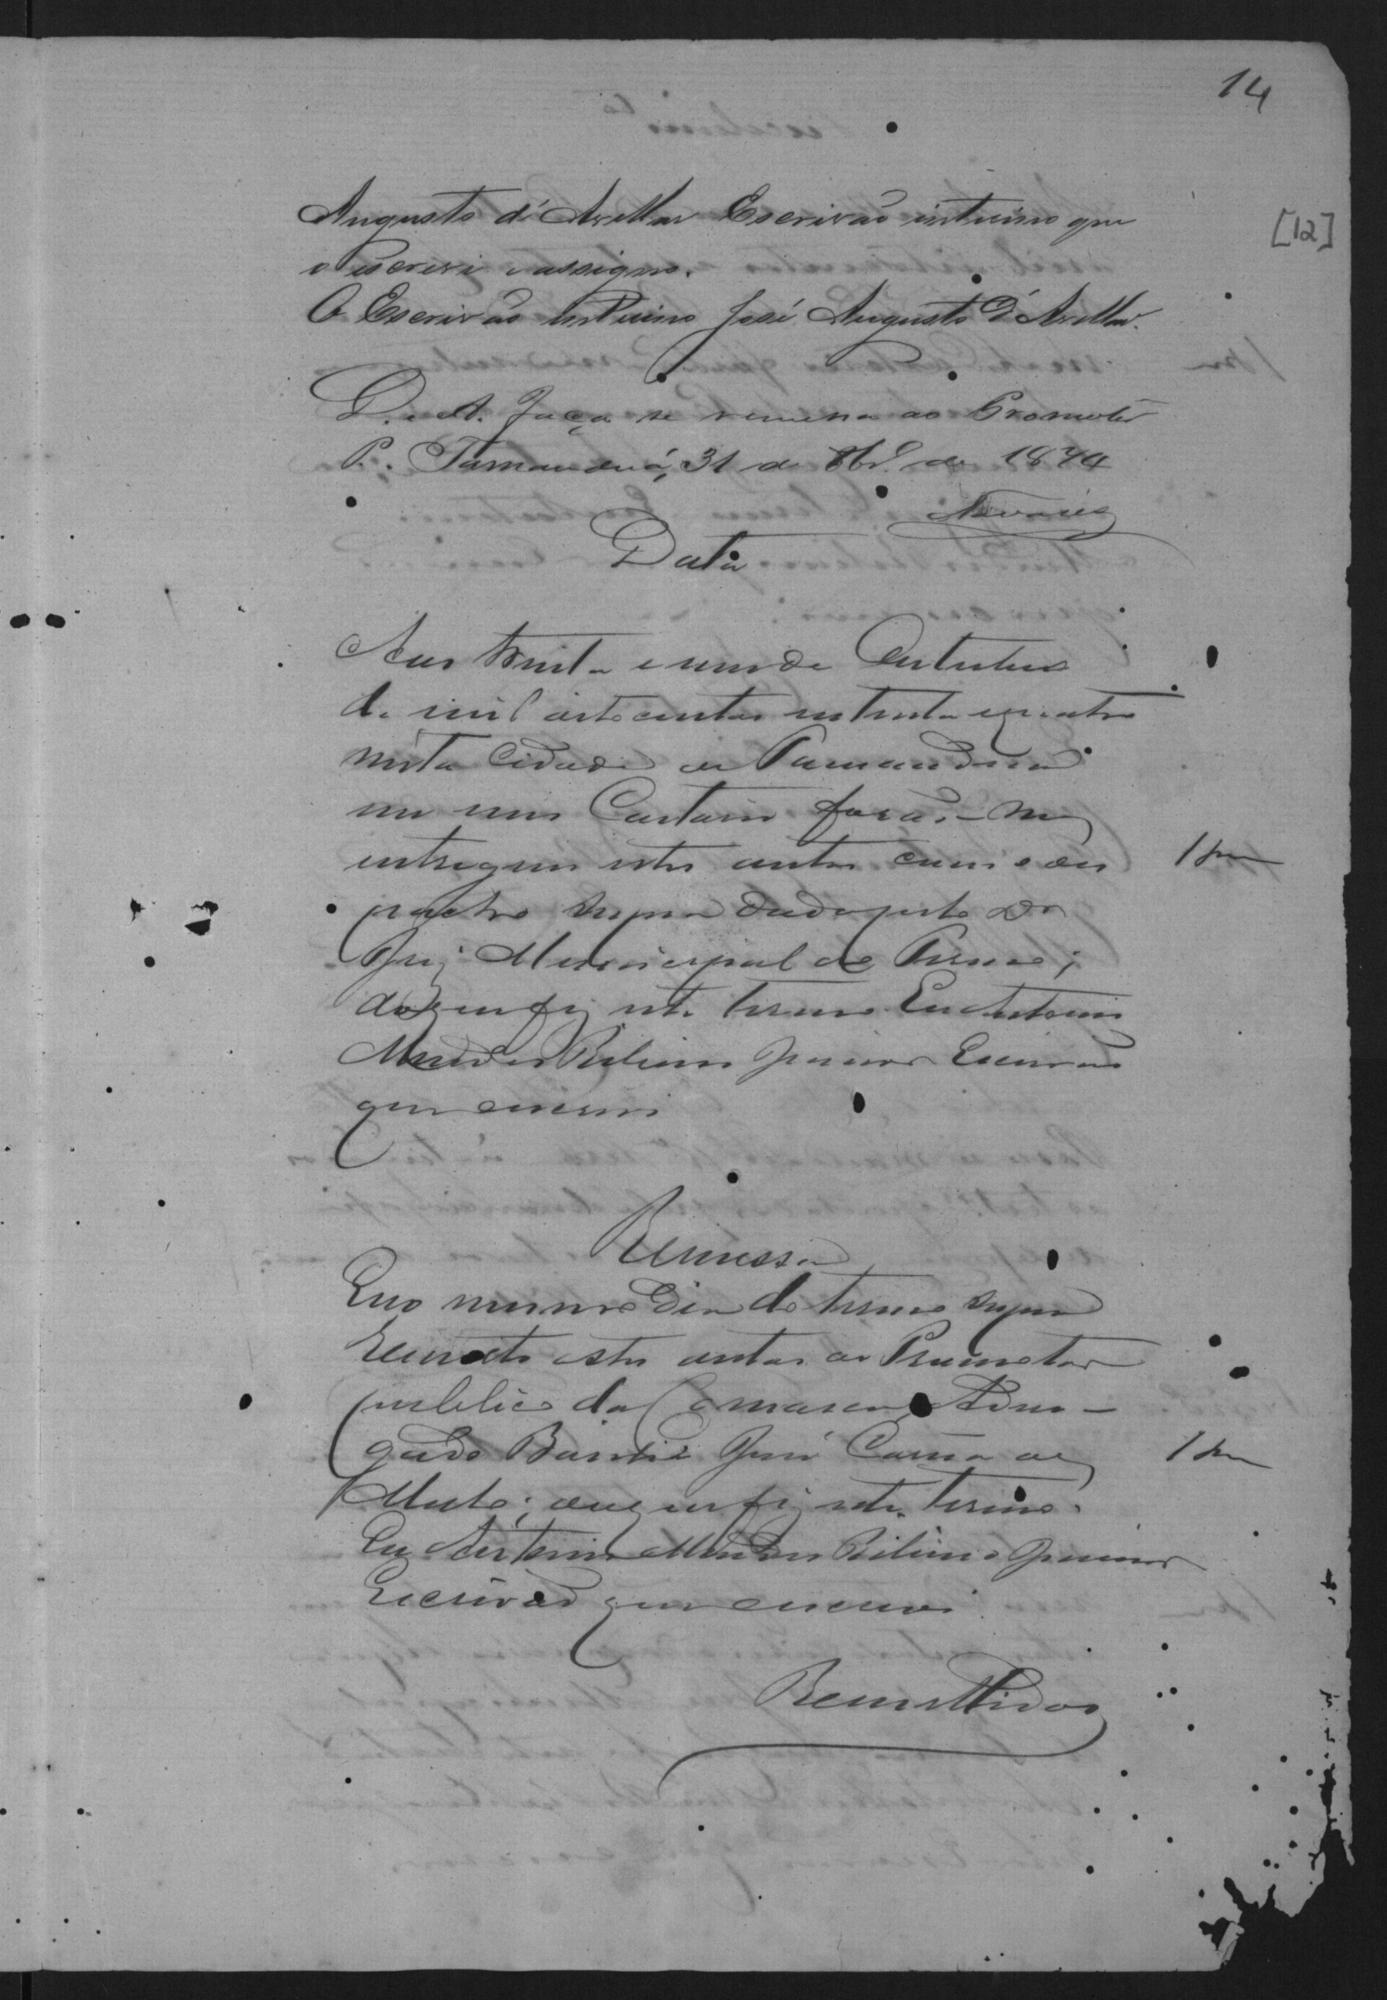 14
[12]
Augusto d'Avellar Escrivão interino que
o escrevi e assigno.
O Escrivão interino José Augusto d'Avellar.
D. e A. faça se remessa ao Promotor
P. Tamanduá, 31 de 8br.º de 1874
Data
Aos trinta e um de Outubro
de mil oito centos setenta e quatro
nesta Cidade de Tamanduá
em meu Cartorio forão me
entregues estes autos com o des
pacho supra dado pelo Dr
Juiz Municipal do Termo;
do que fiz este termo Eu Antonio
Mendes Ribeiro Junior Escrivão
que escrevi
Remessa
E no mesmo dia do termo supra
remeto estes autos ao Promotor
publico da Comarca Advo-
gado José Corrêa de
do que fiz este termo.
Eu Antonio Mendes Ribeiro Junior
Escrivão que escrevi
Remettidos